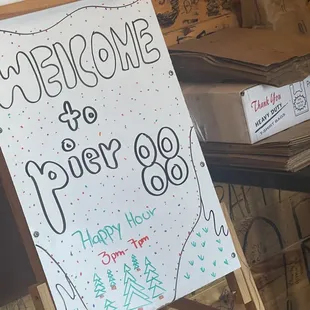 WELCOME
to
pier 88
Happy Hour
3pm - 7pm
Thank You
HEAVY DUTY